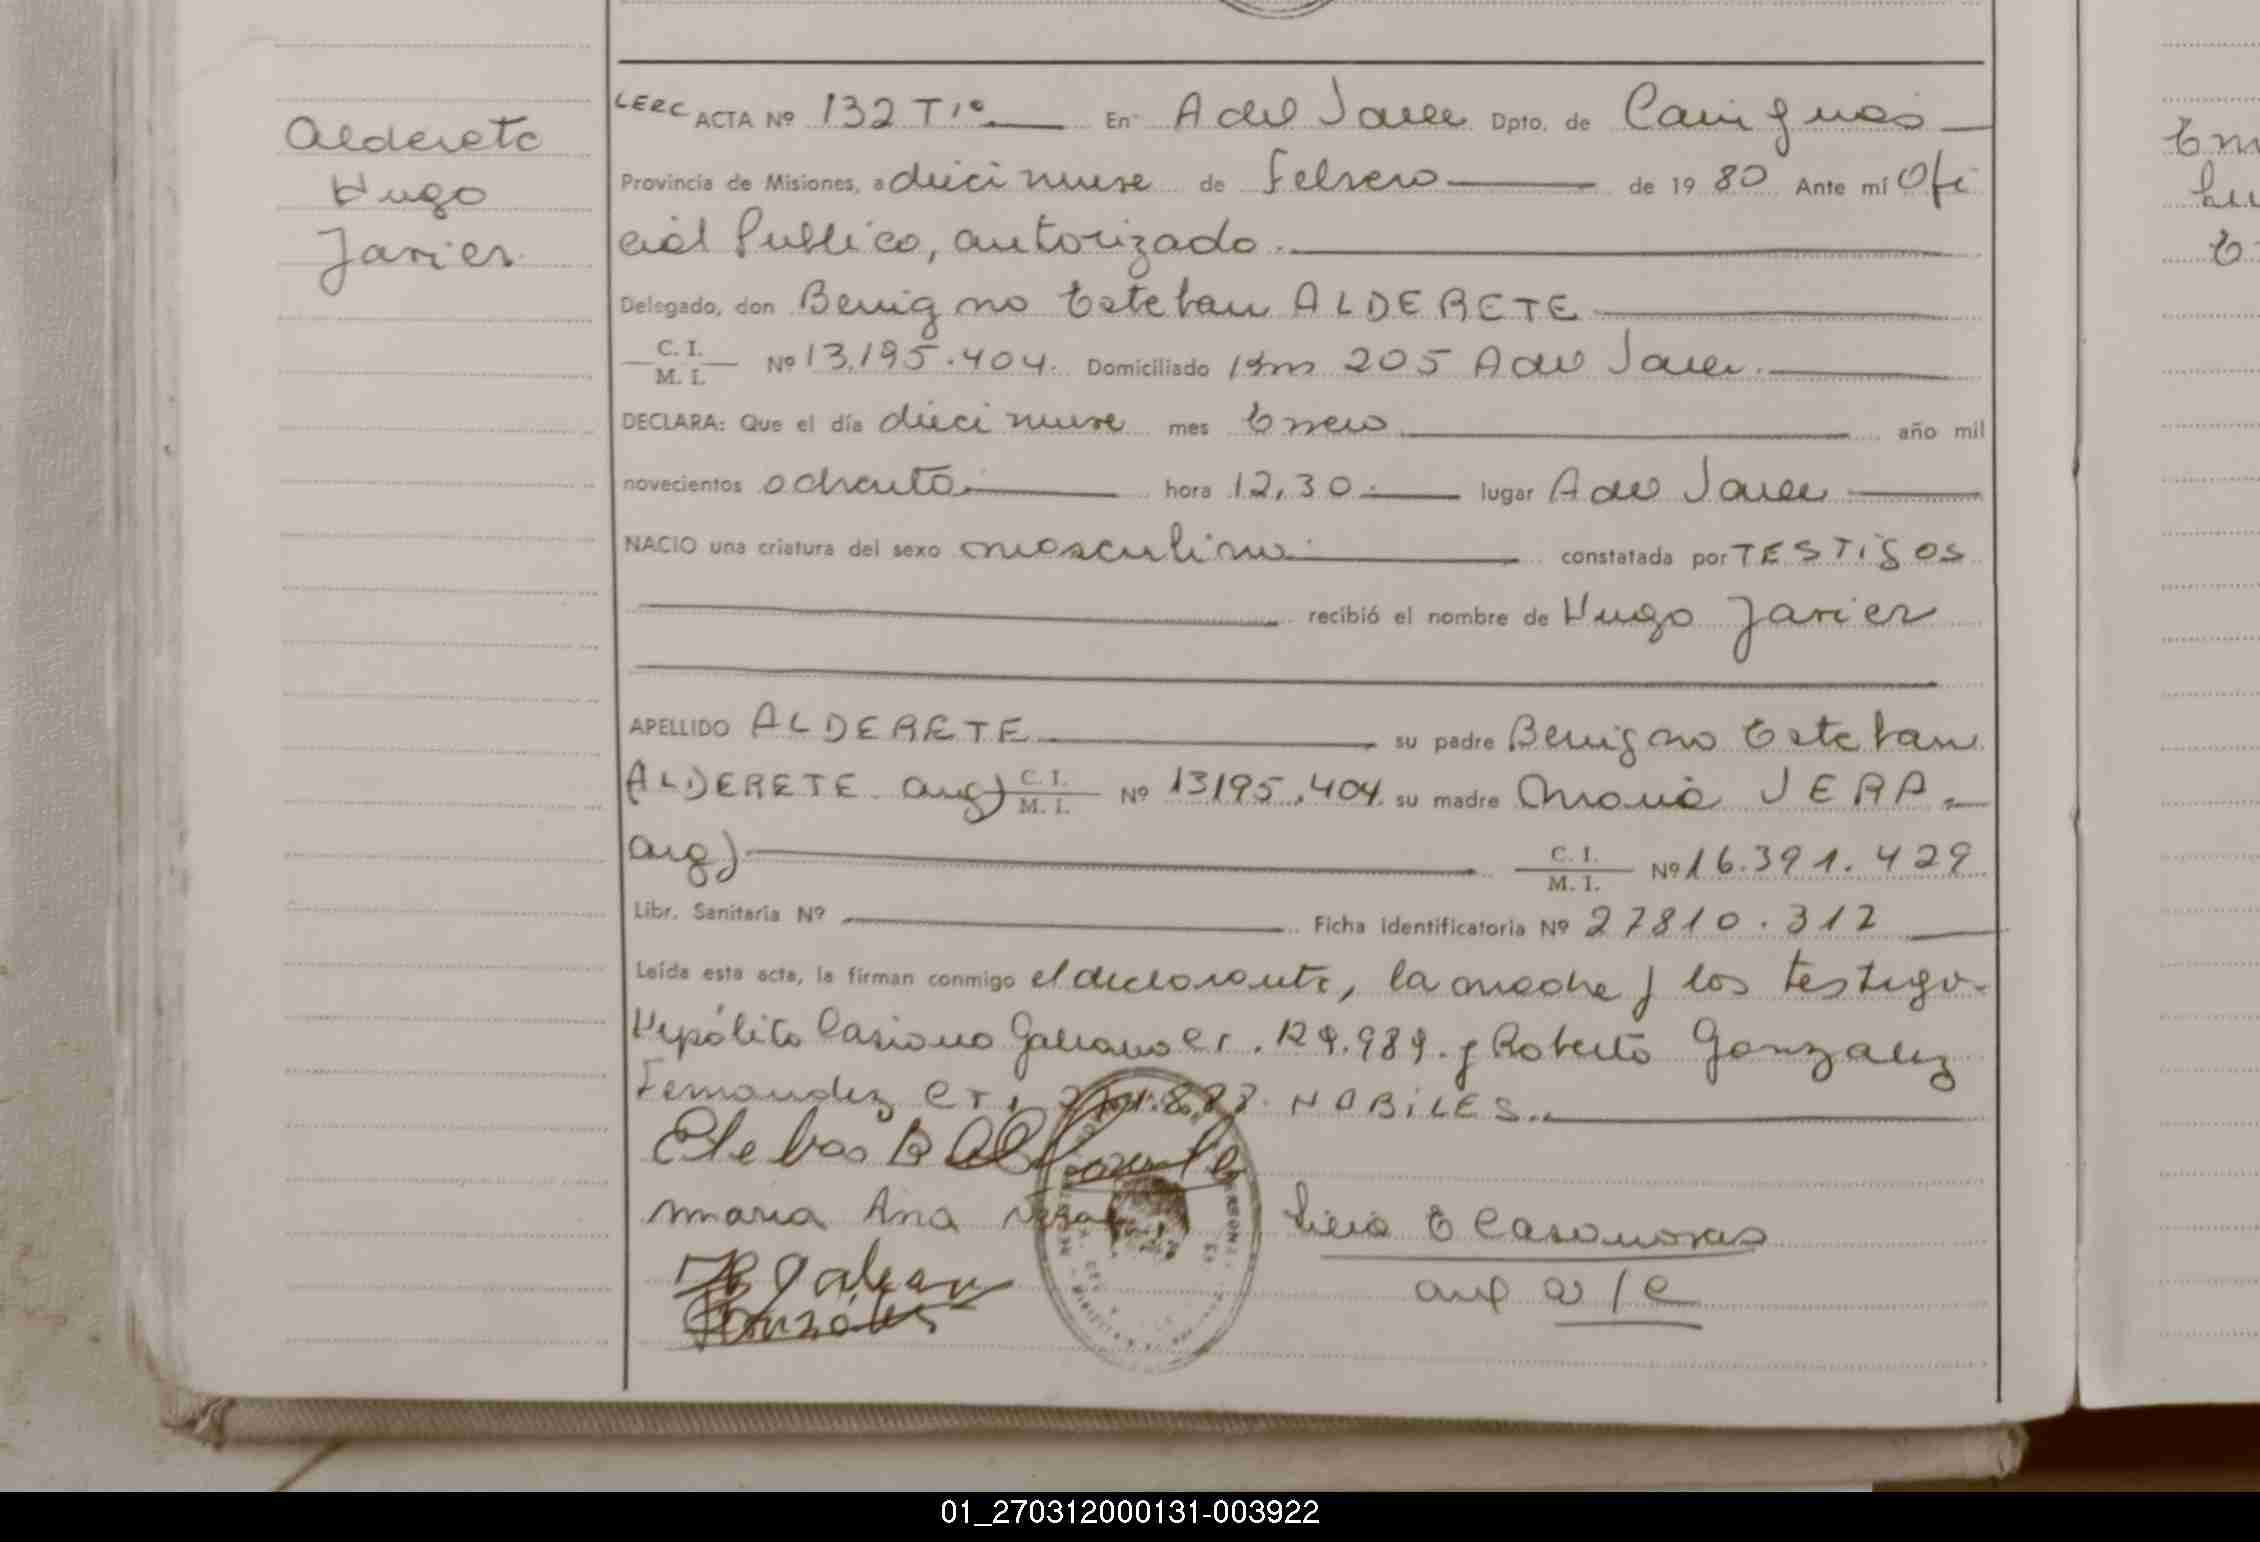 Alderete
Hugo
Javier
LERC ACTA Nº 132 Tº En A del Valle Dpto. de Cainguas
Provincia de Misiones, a dieci nueve de Febrero de 19 80 Ante mí Ofi
cial Publico, autorizado.
Delegado, don Benigno Esteban ALDERETE
C. I.
M. I. Nº 13.195.404. Domiciliado Km 205 A del Valle.
DECLARA: Que el día dieci nueve mes Enero año mil
novecientos ochenta. hora 12,30. lugar A del Valle
NACIO una criatura del sexo masculino. constatada por TESTIGOS
recibió el nombre de Hugo Javier
APELLIDO ALDERETE su padre Benigno Esteban
ALDERETE arg) C. I.
M. I. Nº 13195.404. su madre Maria VERA.
arg) C. I.
M. I. Nº 16.391.429
Libr. Sanitaria Nº Ficha Identificatoria Nº 27810.312
Leída esta acta, la firman conmigo el declarante, la madre y los testigo.
Hipólito Casiano Galeano CI. 129.989. y Roberto Gonzalez
Fernandez CI. NOBILES.
Maria Ana Vera
E Casanovas
Galean
Gonzáles
01_270312000131-003922